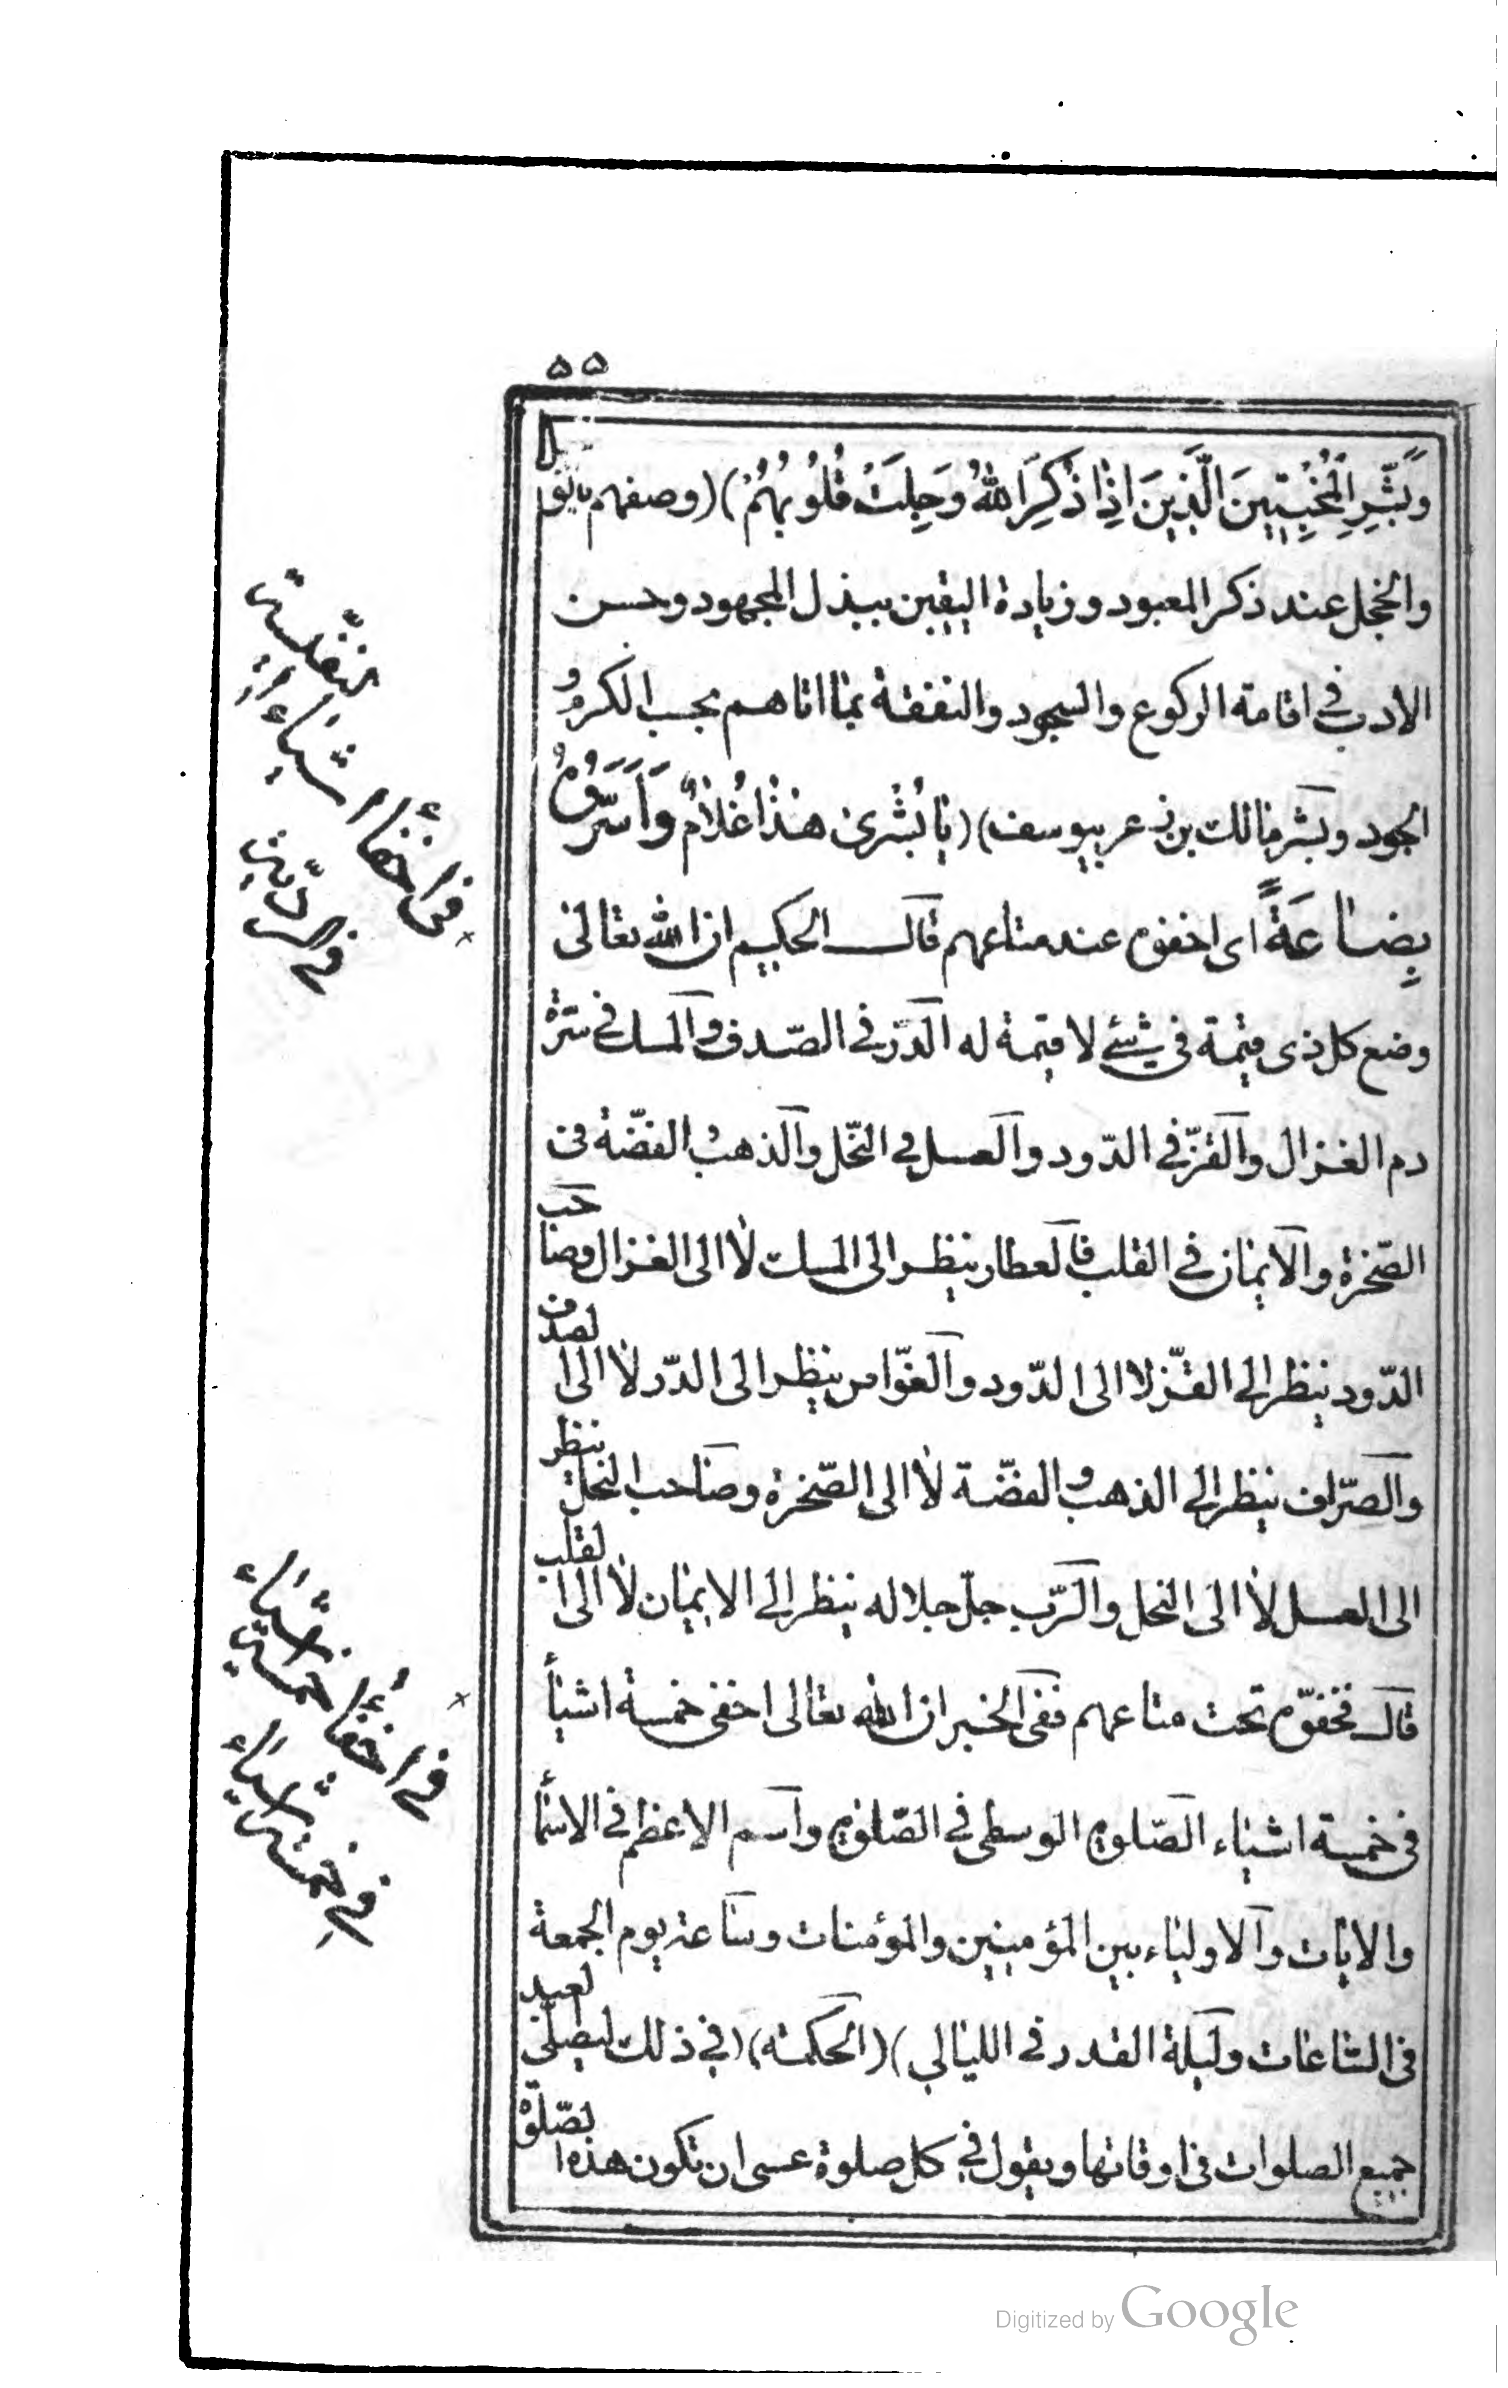 ۵۵
وَبَشِّرِ الْمُخْبِتِينَ الَّذِينَ اِذَا ذُكِرَ اللهُ وَجِلَتْ قُلُوبُهُمْ) (وصفهم بالتو
والخجل عند ذكر المعبود وزيادة اليقين ببذل المجهود وحسن
الادب فى اقامة الركوع والسجود والنفقة بما اتاهم بحسب الكرم و
الجود وبشر مالك بن زعر بيوسف) (يا بُشْرى هٰذَا غُلَامٌ وَاَسَرُّوهُ
بِضَاعَةً اى اخفوه عند متاعهم قال الحكيم ان الله تعالى
وضع كل ذى قيمة فى شئ لا قيمة له الدرّ فى الصّدف والمسك فى سرّة
دم الغزال والقزّ فى الدّود والعسل فى النّحل والذهب والفضّة فى
الصّخرة والايمان فى القلب فالعطار ينظر الى المسك لا الى الغزال وصاحب
الدّود ينظر الى القزّ لا الى الدّود والغوّاص ينظر الى الدّر لا الى الصدف
والصرّاف ينظر الى الذهب والفضّة لا الى الصّخرة وصاحب النحل ينظر
الى العسل لا الى النحل والرّب جلّ جلاله ينظر الى الايمان لا الى القلب
قال فخفوّه تحت متاعهم ففى الخبر ان الله تعالى اخفى خمسة اشيأ
فى خمسة اشياء الصّلوة الوسطى فى الصّلوة واسم الاعظم فى الاسمأ
والايات والاولياء بين المؤمنين والمؤمنات وساعة يوم الجمعة
فى الساعات وليلة القدر فى الليالى) (الحكمة) (فى ذلك ليصلّى العبد
جميع الصلوات فى اوقاتها ويقول فى كل صلوة عسى ان تكون هذه الصّلوة
فى اخفأ اشياء
النفيسة
فى الرديّة
فى اخفأ خمسة اشياء
فى خمسة اشياء
Digitized by Google